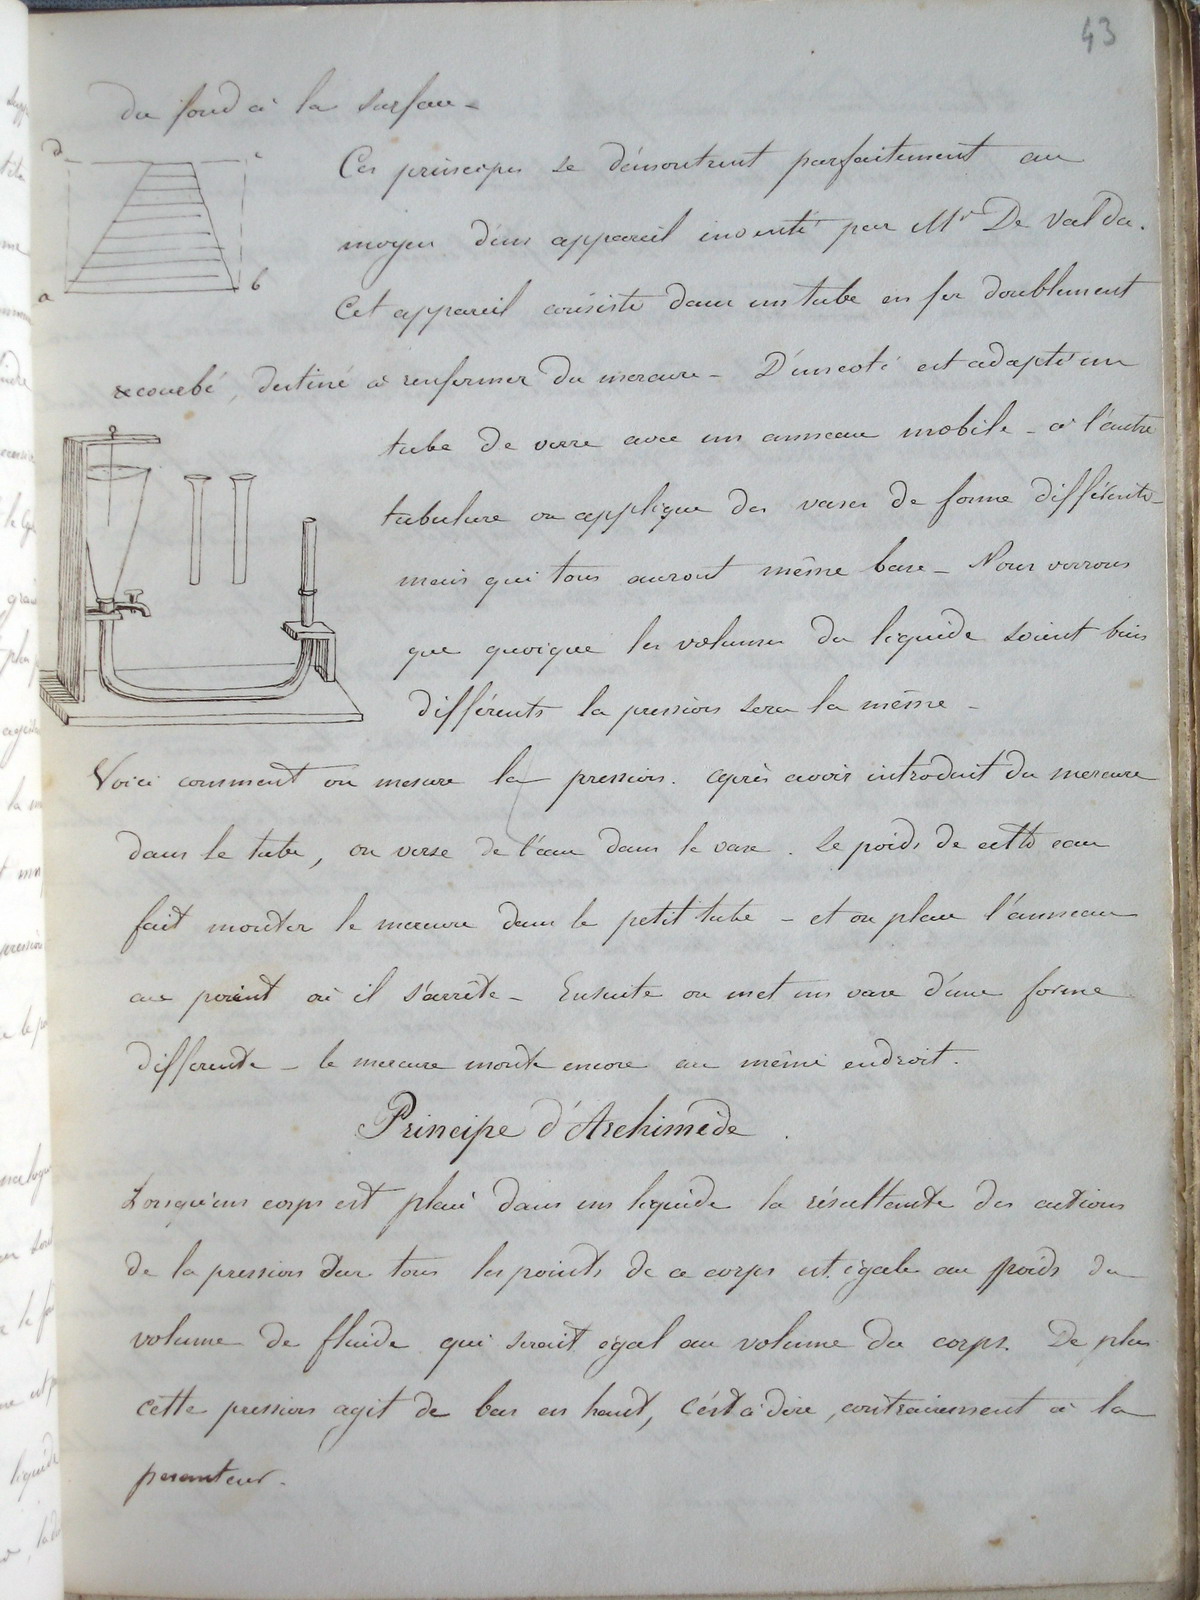 43
du fond à la surface -
d c
Ces principes se démontrent parfaitement au
moyen d'un appareil inventé par Mr De Valda.
a b
Cet appareil consiste dans un tube en fer doublement
recourbé, destiné à renfermer du mercure - D'un coté est adapté un
tube de verre avec un anneau mobile - à l'autre
tubulure on applique des vases de forme différente -
mais qui tous auront même base - Nous verrons
que quoique les volumes du liquide soient bien
différents la pression sera la même -
Voici comment on mesure la pression. après avoir introduit du mercure
dans le tube, on verse de l'eau dans le vase. Le poids de cette eau
fait monter le mercure dans le petit tube - et on place l'anneau
au point où il s'arrête - Ensuite on met un vase d'une forme
differente - le mercure monte encore au même endroit.
Principe d'Archimède.
Lorsqu'un corps est placé dans un liquide la résultante des actions
de la pression sur tous les points de ce corps est égale au poids du
volume de fluide qui serait égal au volume du corps. De plus
cette pression agit de bas en haut, c'est à dire, contrairement à la
pesanteur.